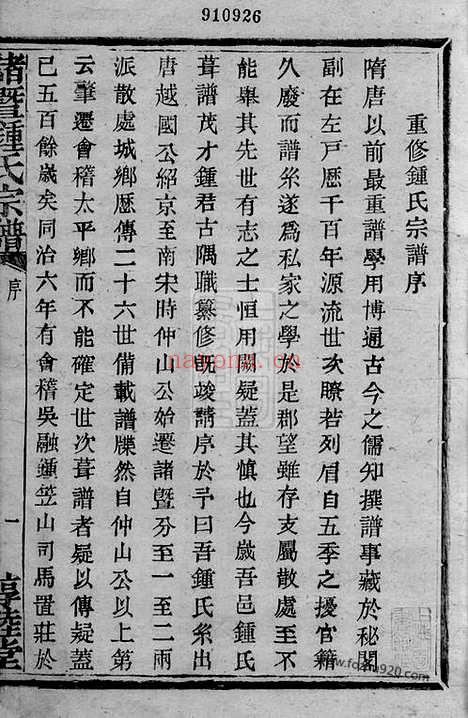 910926
重修鍾氏宗譜序
隋唐以前最重譜學用博通古今之儒知撰譜事藏於秘閣
副在左戸歷千百年源流世次瞭若列眉自五季之擾官籍
久廢而譜系遂爲私家之學於是郡望雖存支屬散處至不
能舉其先世有志之士恒用闕疑蓋其慎也今歲吾邑鍾氏
葺譜茂才鍾君古隅職纂修旣竣請序於予曰吾鍾氏系出
唐越國公紹京至南宋時仲山公始遷諸暨分至一至二兩
派散處城鄉歷傳二十六世備載譜牒然自仲山公以上第
云肇遷會稽太平鄉而不能確定世次葺譜者疑以傳疑蓋
已五百餘歲矣同治六年有會稽吳融鍾笠山司馬置莊於
諸暨鍾氏宗譜
序
一
惇睦堂
nayona.cn
www.fozhu920.com